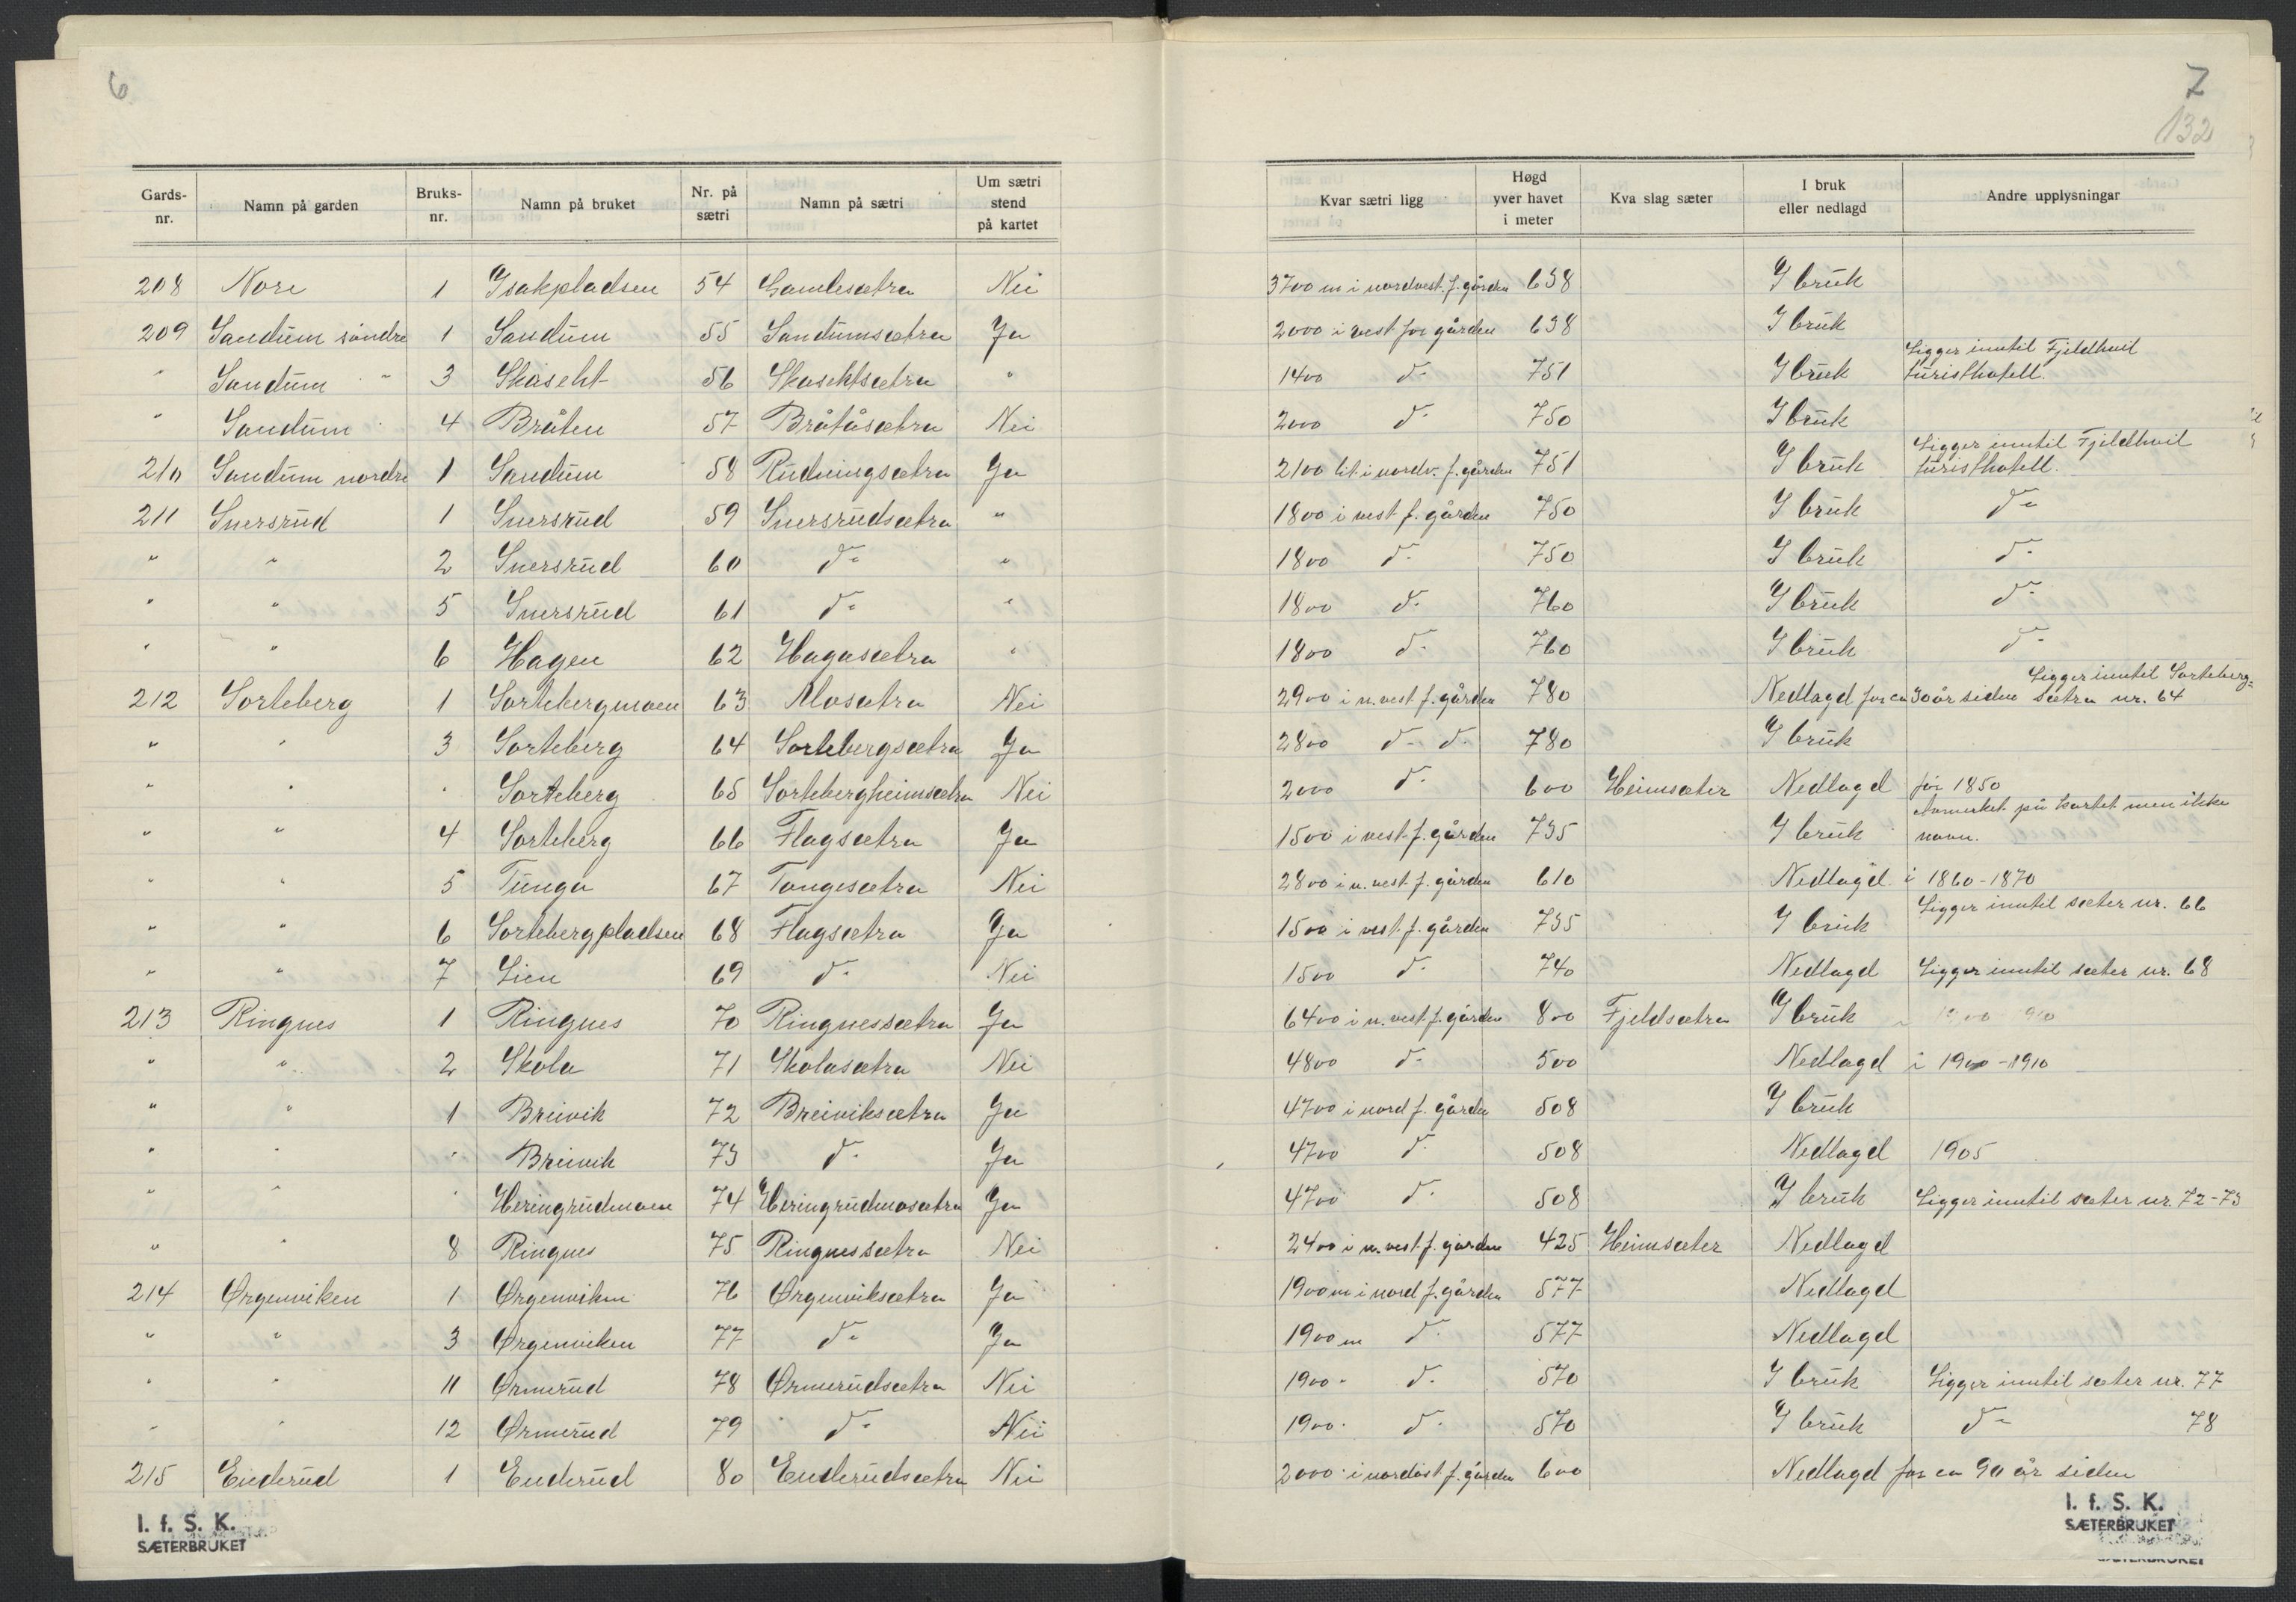 6
7
132
Gards-nr. | Namn på garden | Bruks-nr. | Namn på bruket | Nr. på sætri | Namn på sætri | Um sætri stend på kartet | Kvar sætri ligg | Høgd yver havet i meter | Kva slag sæter | I bruk eller nedlagd | Andre upplysningar
208 | Nore | 1 | Isakpladsen | 54 | Gamlesætra | Nei | 3700 m i nordvest. f. gården | 638 | | I bruk |
209 | Sandum søndre | 1 | Sandum | 55 | Sandumsætra | Ja | 2000 i vest for gården | 638 | | I bruk |
" | Sandum " | 3 | Skaseht | 56 | Skasehtsætra | " | 1400 do | 751 | | I bruk | Ligger inntil Fjeldhvil turisthotell.
" | Sandum " | 4 | Bråten | 57 | Bråtåsætra | Nei | 2000 do | 750 | | I bruk |
210 | Sandum nordre | 1 | Sandum | 58 | Rudningsætra | Ja | 2100 lit i nordv. f. gården | 751 | | I bruk | Ligger inntil Fjeldhvil turisthotell.
211 | Snersrud | 1 | Snersrud | 59 | Snersrudsætra | " | 1800 i vest f. gården | 750 | | I bruk | do
" | " | 2 | Snersrud | 60 | do | " | 1800 do | 750 | | I bruk | do
" | " | 5 | Snersrud | 61 | do | " | 1800 do | 760 | | I bruk | do
" | " | 6 | Hagen | 62 | Hagasætra | " | 1800 do | 760 | | I bruk | do
212 | Sorteberg | 1 | Sortebergmoen | 63 | Mosætra | Nei | 2900 i n.vest f. gården | 780 | | Nedlagd for ca 30 år siden | Ligger inntil Sorteberg= sætra nr. 64
" | " | 3 | Sorteberg | 64 | Sortebergsætra | Ja | 2800 do do | 780 | | I bruk |
" | " | " | Sorteberg | 65 | Sortebergheimsætra | Nei | 2000 do | 600 | Heimsæter | Nedlagd | før 1850
" | " | 4 | Sorteberg | 66 | Flagsætra | Ja | 1500 i vest f. gården | 735 | | I bruk | Avmerket på kartet men ikke navn.
" | " | 5 | Tunga | 67 | Tongesætra | Nei | 2800 i n. vest f. gården | 610 | | Nedlagd | i 1860-1870
" | " | 6 | Sortebergpladsen | 68 | Flagsætra | Ja | 1500 i vest. f. gården | 735 | | I bruk | Ligger inntil sæter nr. 66
" | " | 7 | Lien | 69 | do | Nei | 1500 do | 740 | | Nedlagd | Ligger inntil sæter nr. 68
213 | Ringnes | 1 | Ringnes | 70 | Ringnessætra | Ja | 6400 i n. vest f. gården | 800 | Fjeldsætra | I bruk |
" | " | 2 | Skola | 71 | Skolasætra | Nei | 4800 do | 500 | | Nedlagd | i 1900-1910
" | " | 1 | Breivik | 72 | Breiviksætra | Ja | 4700 i nord f. gården | 508 | | I bruk |
" | " | " | Breivik | 73 | do | Ja | 4700 do | 508 | | Nedlagd | 1905
" | " | " | Heringrudmoen | 74 | Heringrudmosætra | Ja | 4700 do | 508 | | I bruk | Ligger inntil sæter nr. 72-73
" | " | 8 | Ringnes | 75 | Ringnessætra | Nei | 2400 i n. vest f. gården | 425 | Heimsæter | Nedlagd |
214 | Ørgenviken | 1 | Ørgenviken | 76 | Ørgenviksætra | Ja | 1900 m i nord f. gården | 577 | | Nedlagd |
" | " | 3 | Ørgenviken | 77 | do | Ja | 1900 m do | 577 | | Nedlagd |
" | " | 11 | Ørmerud | 78 | Ørmerudsætra | Nei | 1900 - do | 570 | | I bruk | Ligger inntil sæter nr. 77
" | " | 12 | Ørmerud | 79 | do | Nei | 1900 - do | 570 | | I bruk | do 78
215 | Enderud | 1 | Enderud | 80 | Enderudsætra | Nei | 2000 i nordøst f. gården | 600 | | Nedlagd for ca 90 år siden
I. f. S. K.
SÆTERBRUKET
I. f. S. K.
SÆTERBRUKET